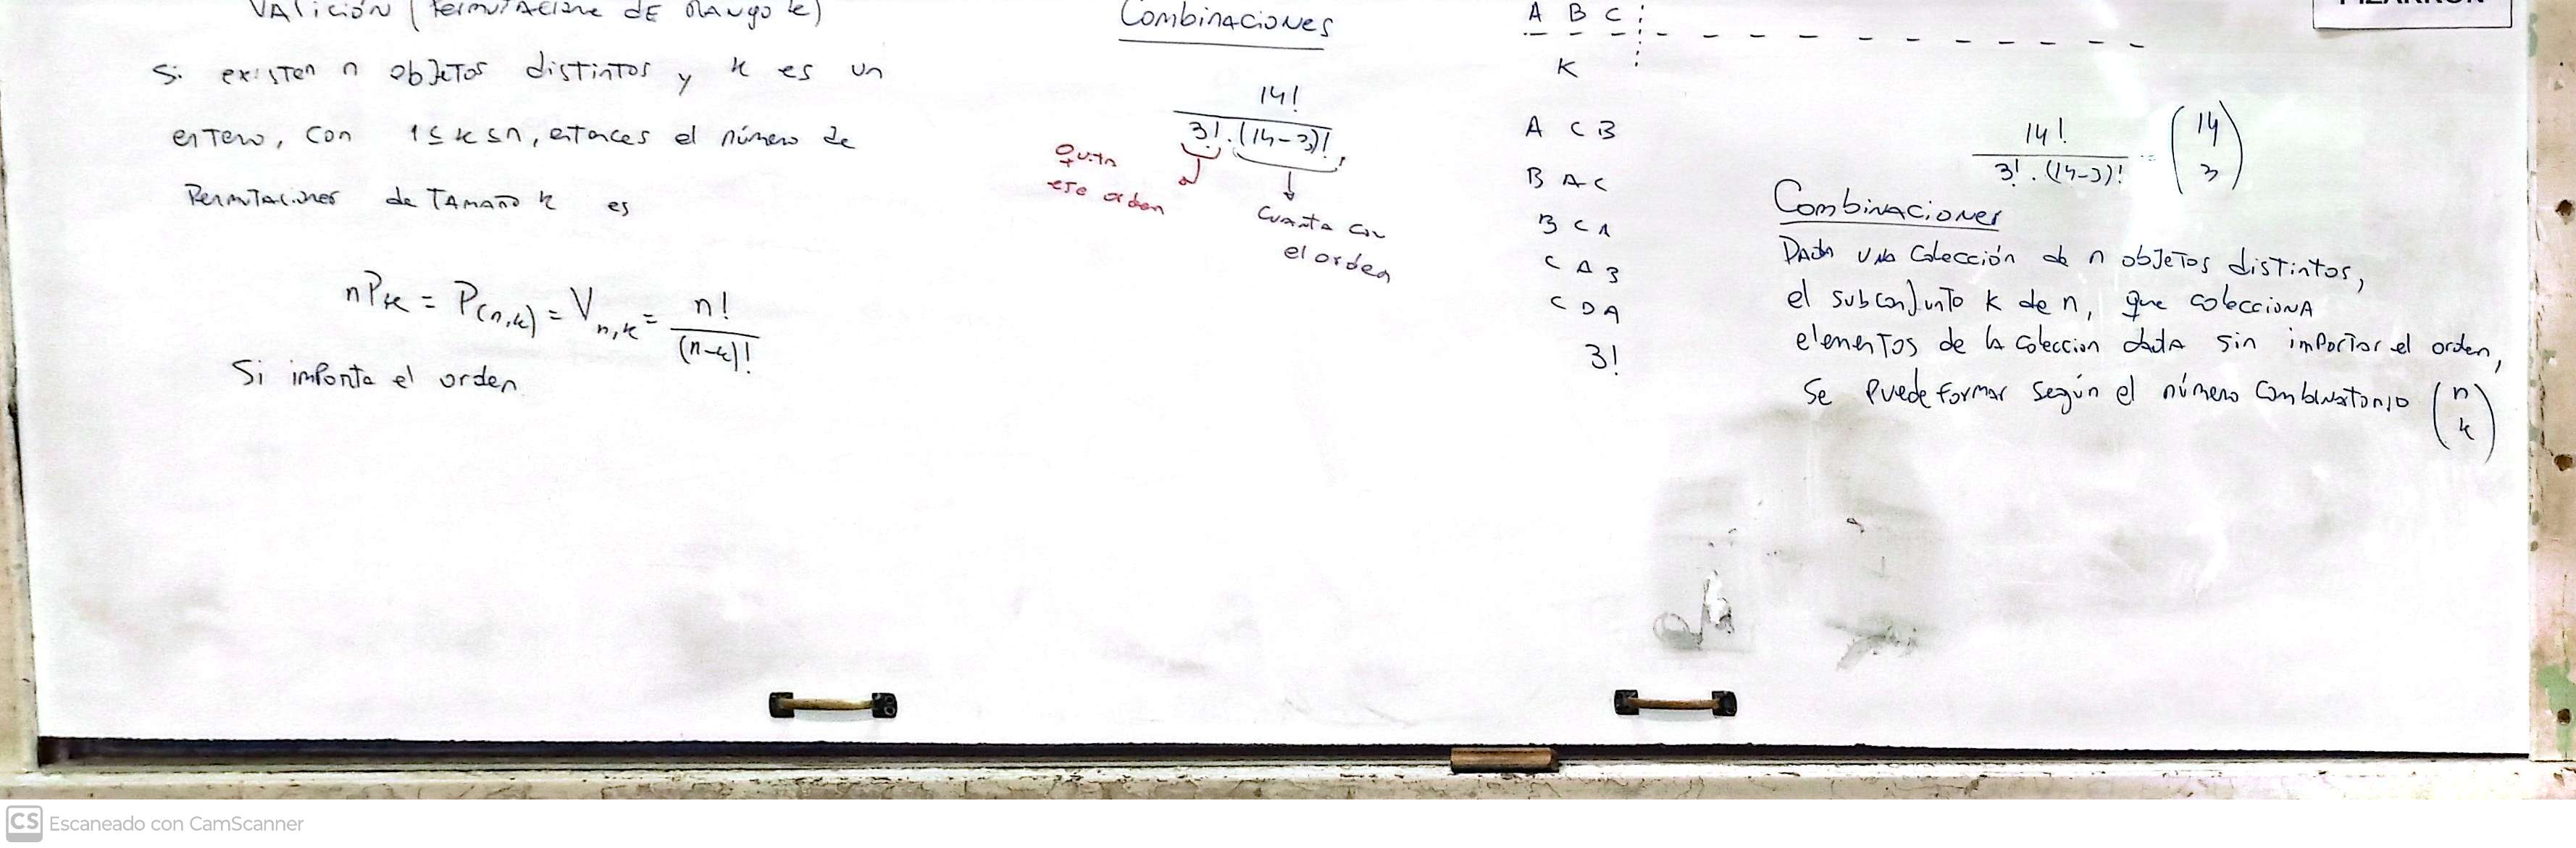 VARICIÓN (PERMUTACIONE DE RANGO k)
Si existen n objetos distintos y k es un
entero, con 1 ≤ k ≤ n, entonces el número de
Permutaciones de TAMAÑO k es
nPk = P(n,k) = V n,k = n! / (n-k)!
Si importa el orden
Combinaciones
14!
3! . (14-3)!
Quita
ese orden
Cuenta con
el orden
A B C
K
A C B
B A C
B C A
C A B
C D A
3!
14! / 3! . (14-3)! = (14 3)
Combinaciones
Dada una Colección de n objetos distintos,
el subconjunto k de n, que colecciona
elementos de la coleccion dada sin importar el orden,
Se puede formar según el número combinatorio (n k)
CS Escaneado con CamScanner